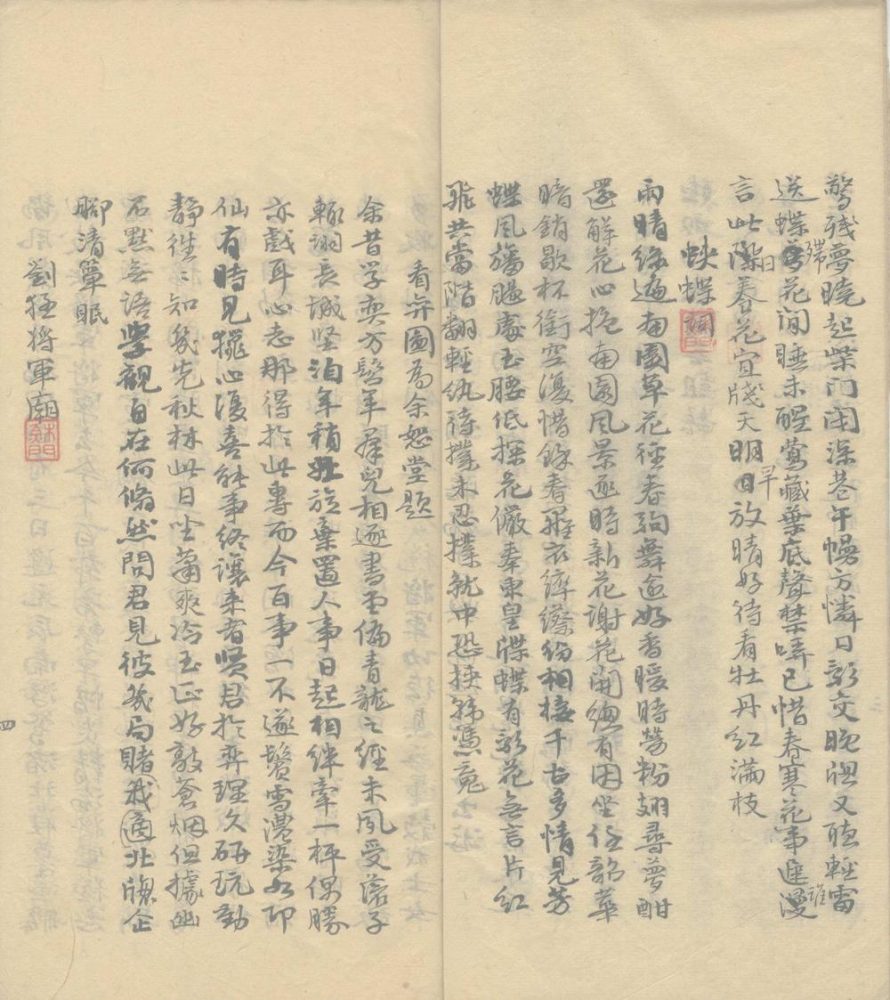 驚殘夢曉起柴門閉深巷午幔方憐日影交晚窗又聽輕雷
送蝶滯花間睡未醒鶯藏葉底聲禁哢已惜春寒花事遲漫
言此際春花宜牋天明日放晴好待看牡丹紅滿枝
蛺蝶詞
雨晴綠遍南園草花徑春殉舞逾好香暖時勞粉翅尋夢酣
還解花心抱南園風景逐時新花謝花開總有因坐任韶華
暗銷歇杯銜空復惜餘春羅衣繂縩紛相接千古多情見芳
蝶風簷腿處玉腰低探花儼奉東皇牒蝶有新花無言片紅
飛共當階翻輕紈待撲未忍撲就中恐挾韓憑魂
看弈圖為余恕堂題
余昔學奕方髫年群兒相逐書堂偏青龍之經未夙受蔡子
轍詡長城堅泊年稍壯旋棄置人事日起相絆牽一枰偶勝
亦戲耳心志那得於此專而今百事一不遂鬢雪濃染如印
仙有時見獵心復喜能事終讓來者賢君於弈理久研玩動
靜往往知幾先秋林此日坐蕭爽冷玉正好敲蒼烟但據幽
石默無語學觀自在何翛然問君見彼幾局賭我適北牕企
腳清簟眠
劉猛將軍廟
四